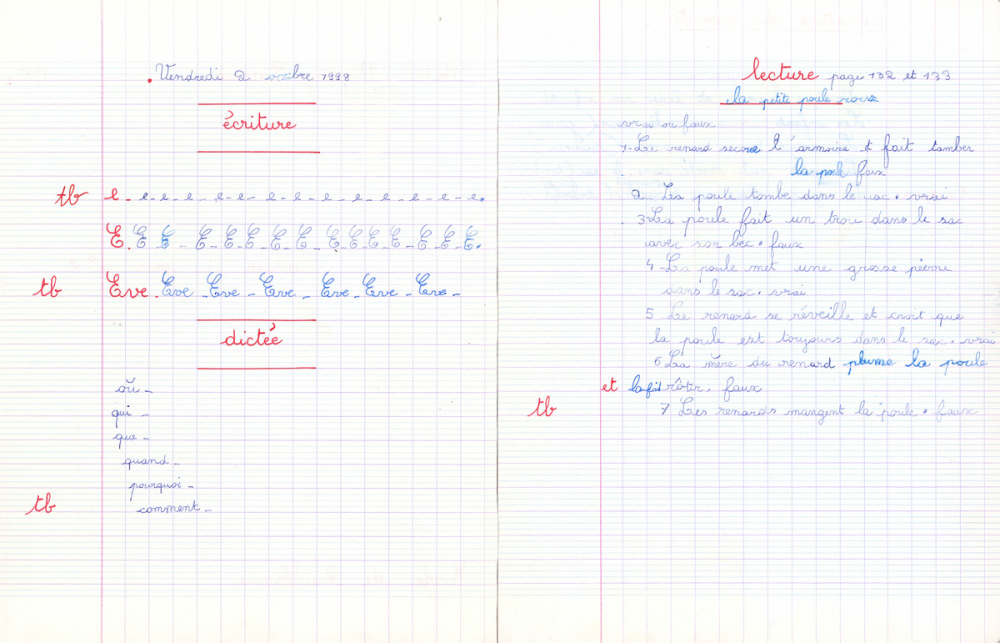 Vendredi 2 octobre 1998
écriture
tb e - e - e - e - e - e - e - e - e - e - e - e - e - e - e - e.
E. E E - E E E E E E E E E - E E E.
tb Eve. Eve - Eve - Eve - Eve - Eve - Eve -
dictée
où -
qui -
que -
quand -
pourquoi -
tb comment -
lecture page 132 et 133
la petite poule rousse
vrai ou faux
1 - Le renard secoue l'armoire et fait tomber
la poule faux
2 - La poule tombe dans le sac. vrai
3 - La poule fait un trou dans le sac
avec son bec. faux
4 - La poule met une grosse pierre
dans le sac. vrai
5 Le renard se réveille et croit que
la poule est toujours dans le sac. vrai
6 La mère du renard plume la poule
et la fait rôtir. faux
tb 7 Les renards mangent la poule. faux